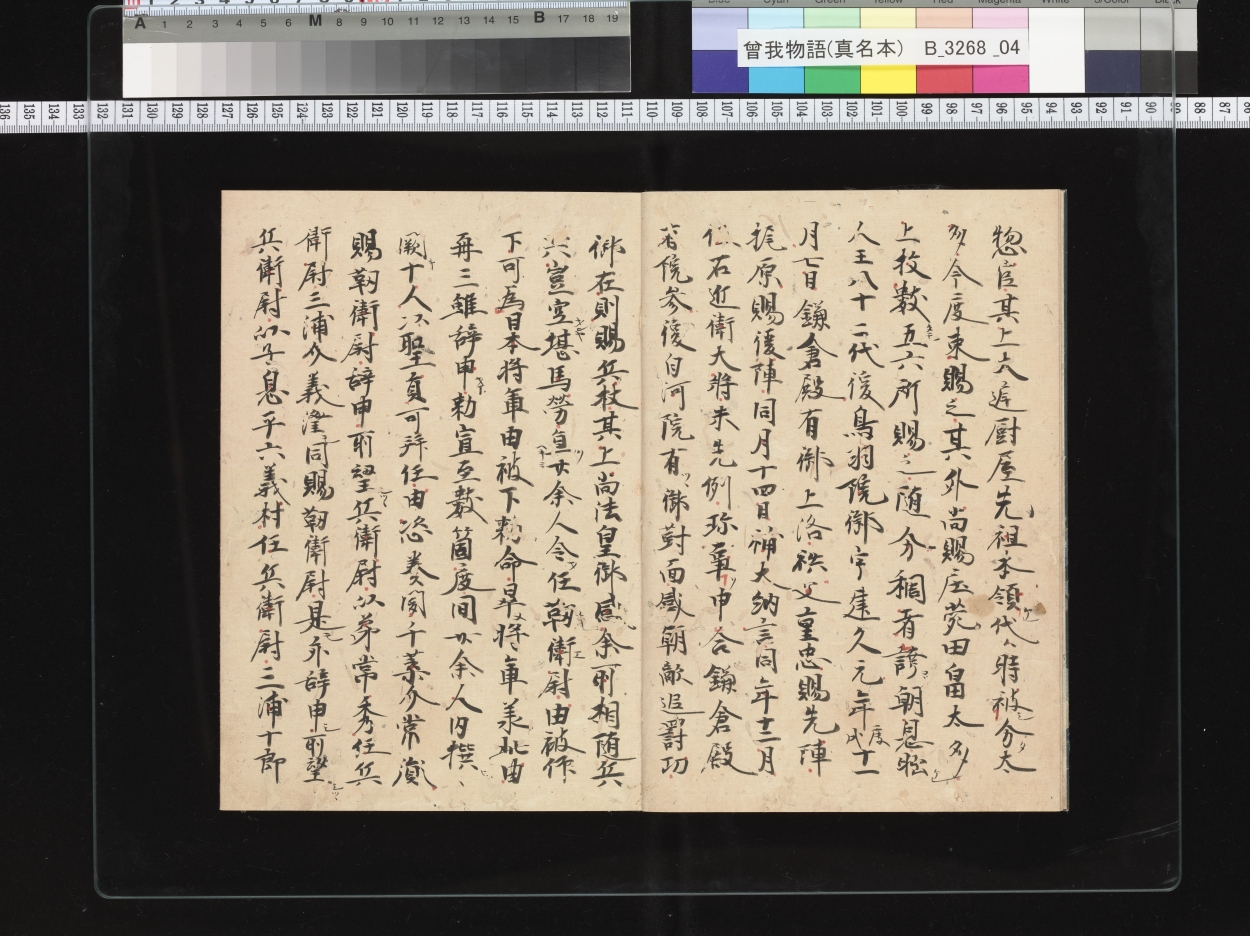 曾我物語(真名本) B_3268_04
惣官其上大庭厨屋先祖本領代々時被分太
多今度束賜之其外尚賜庄薗田畠太多
上枚數五六所賜之随分稠者誇朝恩
人王八十二代後鳥羽院御宇建久元年庚戌十一
月七日鎌倉殿有御上洛秩父重忠賜先陣
梶原賜後陣同月十四日補大納言同年十二月
任右近衛大將未先例珎事申合鎌倉殿
院参後白河院有御對面感朝敵追罸功
御在則賜兵杖其上尚法皇御感余可相随兵
共豈空堪馬勞直廿余人令任靭衛尉由被作
下可為日本將軍由被下勅命畢將軍兼此由
再三雖辞申勅宣至數箇度間廿余人内撰
闕十人以聖貢可拜任由千葉介常
賜靭衛尉辞申所望兵衛尉以弟常秀任兵
衛尉三浦介義澄同賜靭衛尉是亦辞申所望
兵衛尉以子息平六義村任兵衛尉三浦十郎